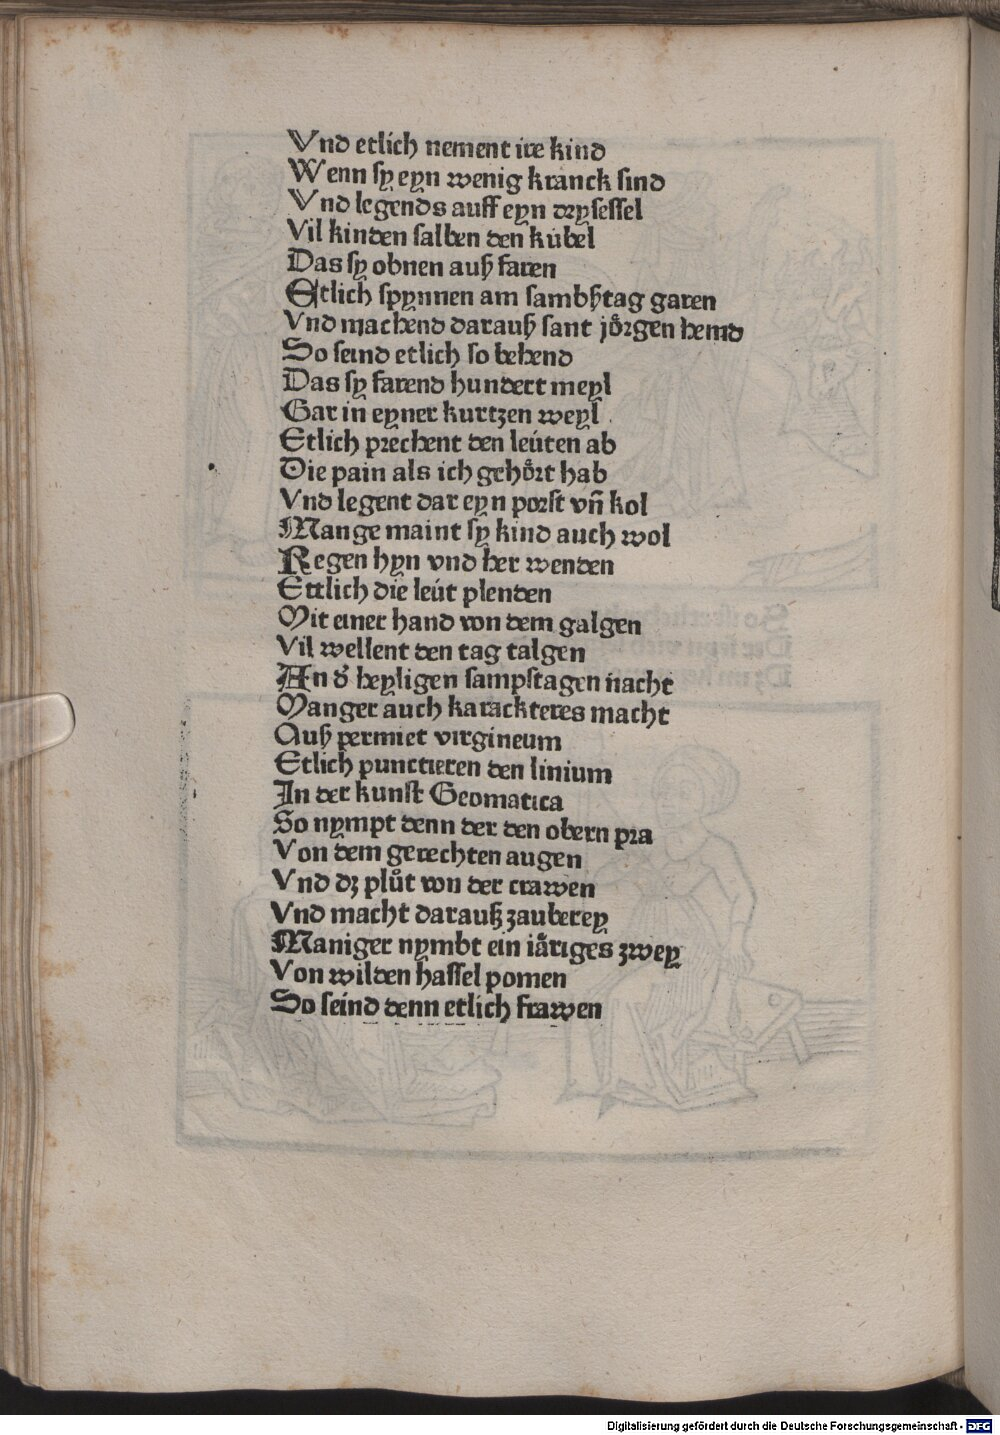 Vnd etlich nement ire kind
Wenn sy eyn wenig kranck sind
Vnd legends auff eyn drysessel
Vil kinden salben den kúbel
Das sy obnen auß faren
Etlich spynnen am sambßtag garen
Vnd machend darauß sant jo̊rgen hemd
So seind etlich so behend
Das sy farend hundert meyl
Gar in eyner kurtzen weyl
Etlich prechent den leúten ab
Die pain als ich geho̊rt hab
Vnd legent dar eyn porst vn̄ kol
Mange maint sy kind auch wol
Regen hyn vnd her wenden
Ettlich die leút plenden
Mit einer hand von dem galgen
Vil wellent den tag talgen
An d᷑ heyligen sampstagen nacht
Manger auch karackteres macht
Auß permiet virgineum
Etlich punctieren den linium
In der kunst Geomatica
So nympt denn der den obern pra
Von dem gerechten augen
Vnd dz plůt von der crawen
Vnd macht darauß zauberey
Maniger nymbt ein iåriges zwey
Von wilden hassel pomen
So seind denn etlich frawen
Digitalisierung gefördert durch die Deutsche Forschungsgemeinschaft - DFG